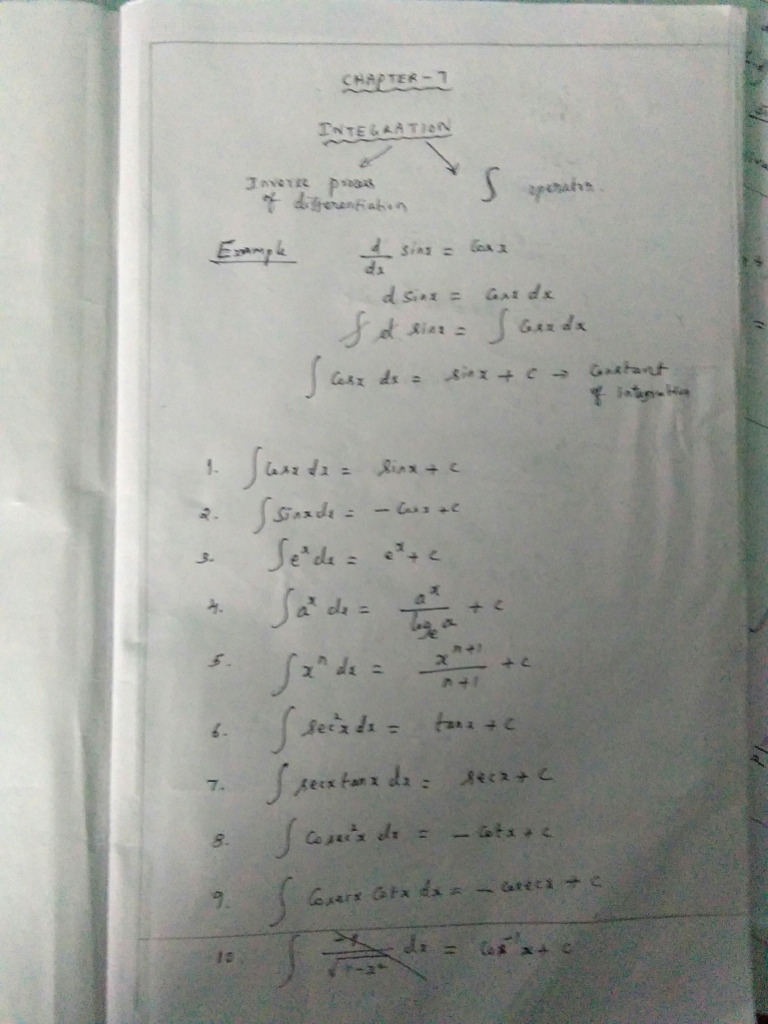 CHAPTER-7
INTEGRATION
Inverse process of differentiation
∫ operator.
Example
d/dx sinx = cosx
d sinx = cosx dx
∫ d sinx = ∫ cosx dx
∫ cosx dx = sinx + c → Constant of integration
1. ∫ cosx dx = sinx + c
2. ∫ sinx dx = - cosx + c
3. ∫ e^x dx = e^x + c
4. ∫ a^x dx = a^x / log_e a + c
5. ∫ x^n dx = x^(n+1) / n+1 + c
6. ∫ sec²x dx = tanx + c
7. ∫ secx tanx dx = secx + c
8. ∫ cosec²x dx = - cotx + c
9. ∫ cosecx cotx dx = - cosecx + c
10. ∫ -1/√1-x² dx = cos⁻¹x + c